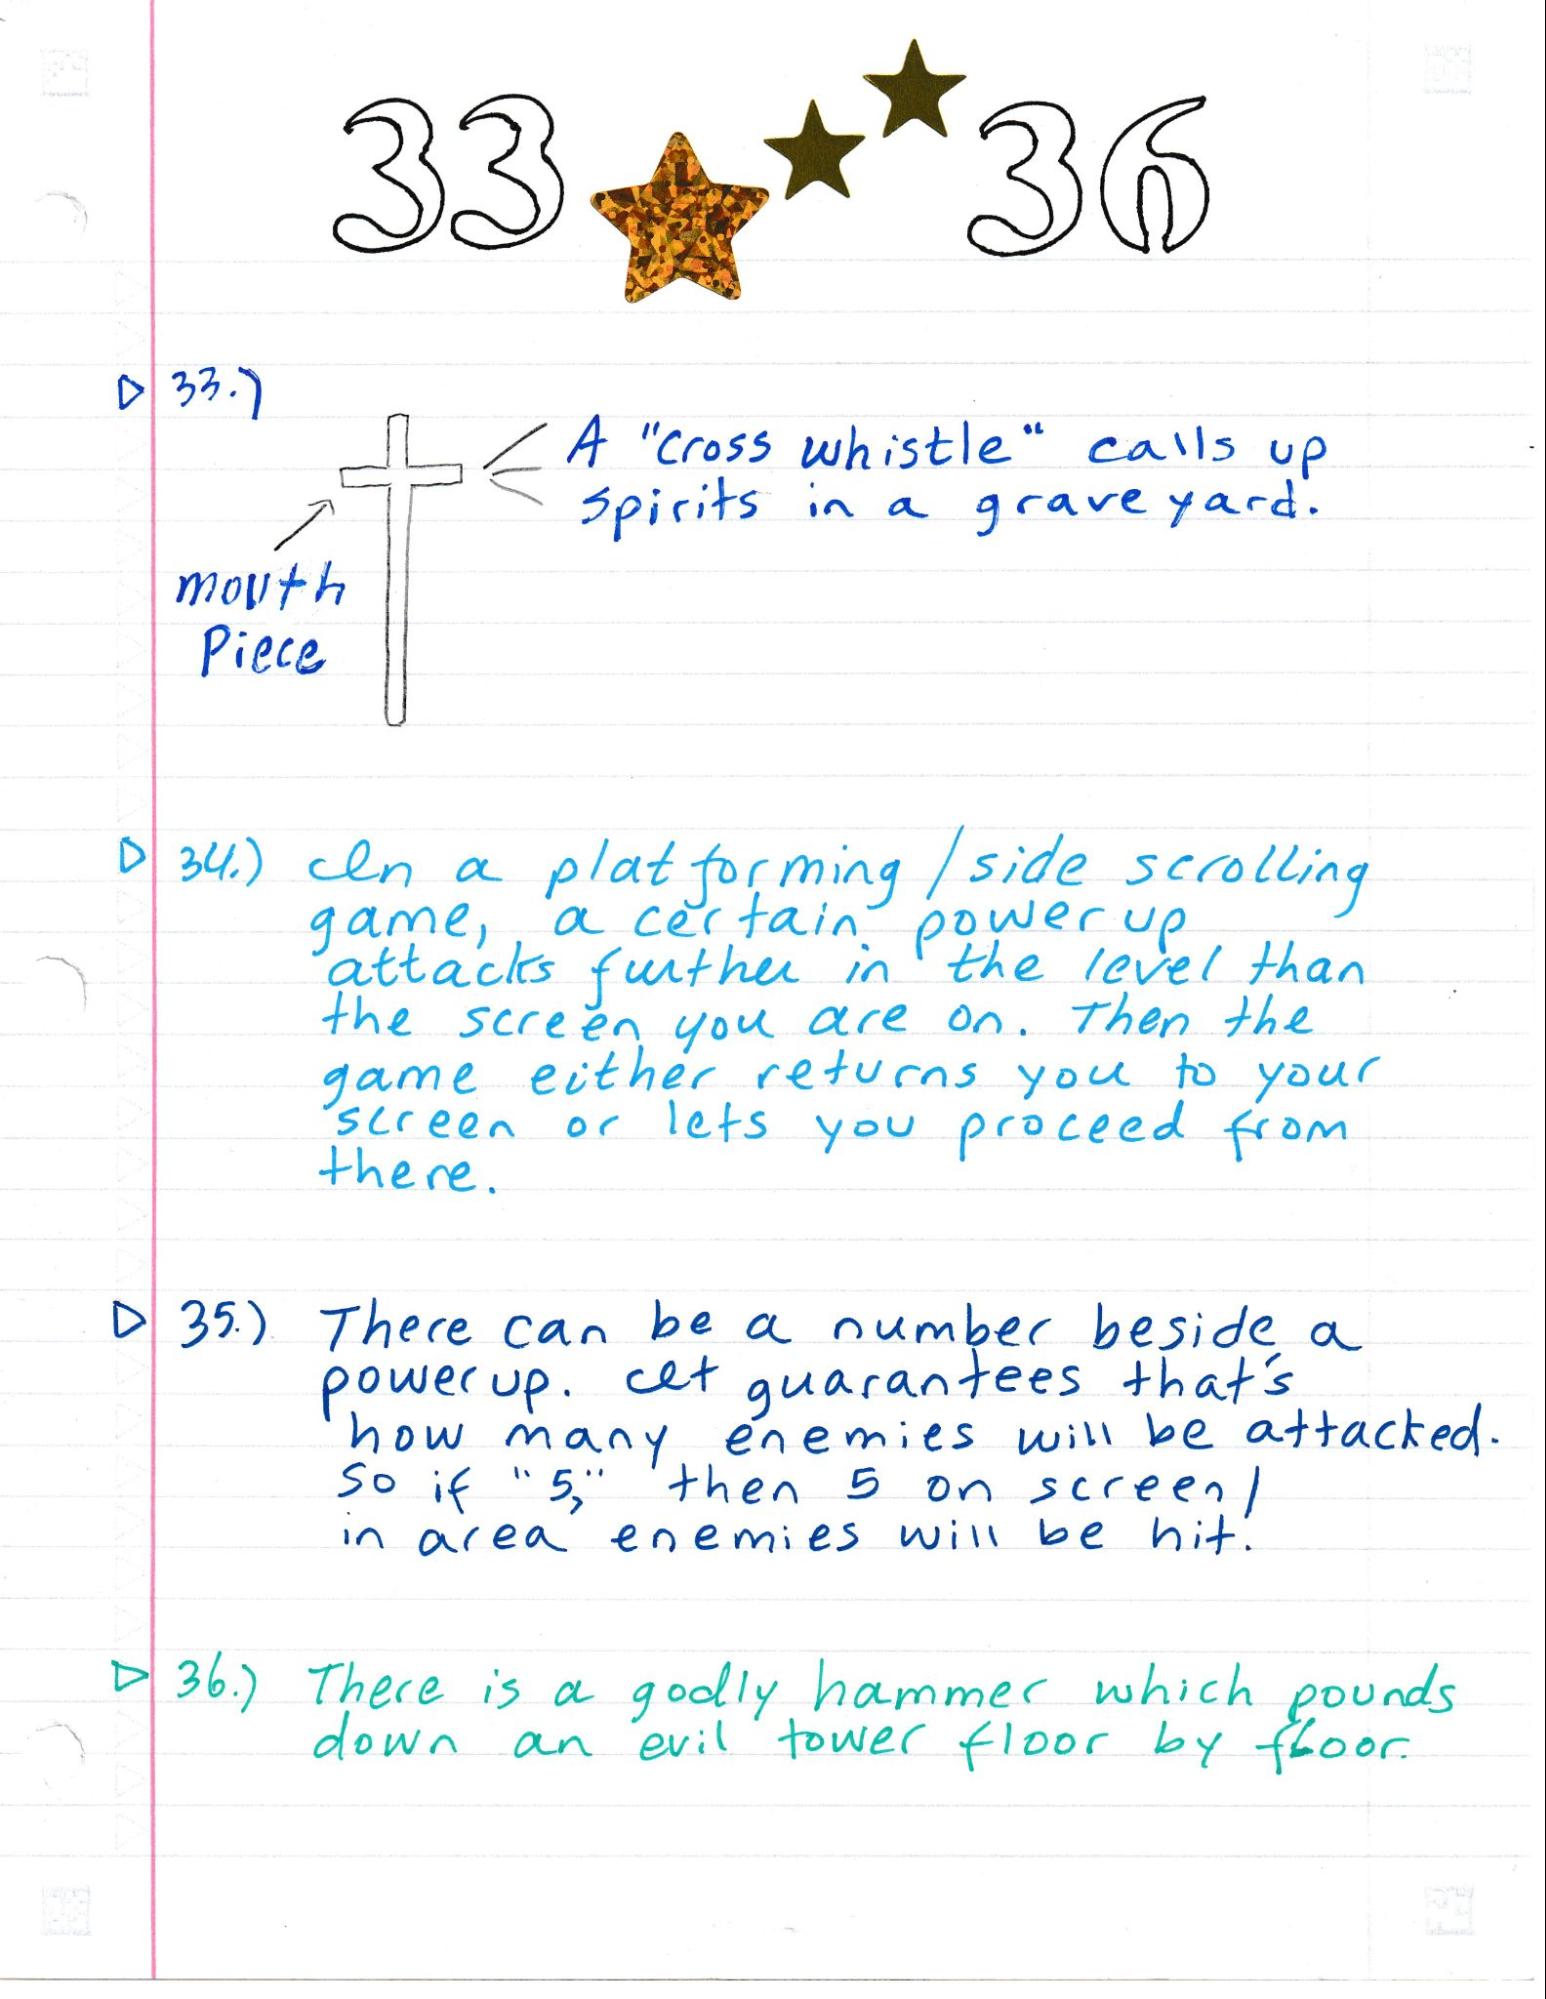 33 36
33.)
A "cross whistle" calls up
spirits in a graveyard.
mouth
Piece
34.) In a platforming/side scrolling
game, a certain powerup
attacks further in the level than
the screen you are on. Then the
game either returns you to your
screen or lets you proceed from
there.
35.) There can be a number beside a
powerup. It guarantees that's
how many enemies will be attacked.
So if "5," then 5 on screen/
in area enemies will be hit.
36.) There is a godly hammer which pounds
down an evil tower floor by floor.